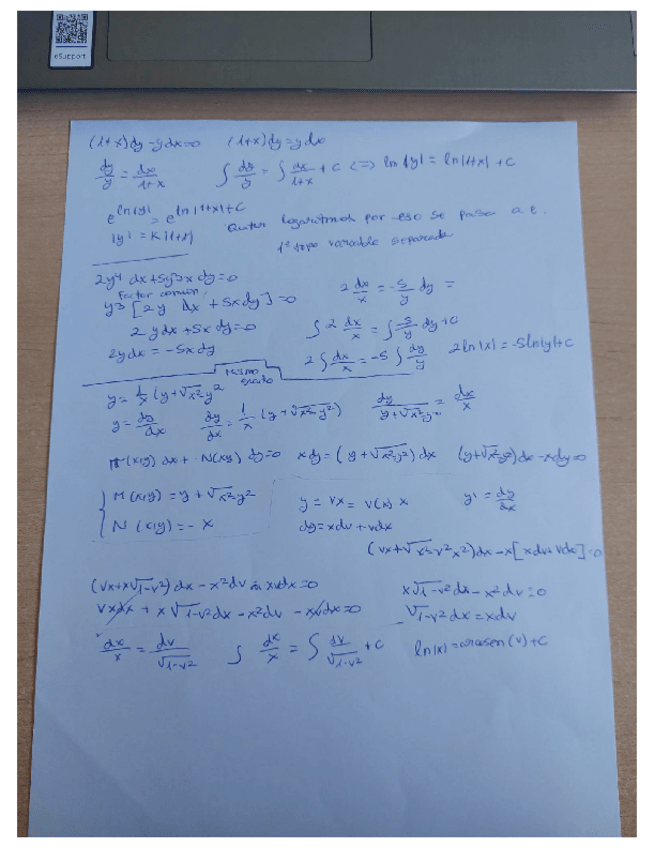 eSupport
(1+x)dy-ydx=0 (1+x)dy=ydx
dy/y = dx/1+x ∫ dy/y = ∫ dx/1+x + c <=> ln|y| = ln|1+x| + c
e^ln|y| = e^ln|1+x|+c
|y| = K|1+x| Quitar logaritmos por eso se pasa a e.
1º tipo variable separada
2y⁴ dx + 5y³x dy = 0
Factor comun
y³ [2y dx + 5x dy] = 0 2 dx/x = -5/y dy =
2ydx + 5x dy = 0 ∫2 dx/x = ∫-5/y dy + c
2ydx = -5x dy 2∫dx/x = -5∫dy/y 2ln|x| = -5ln|y| + c
mismo
grado
y = 1/x (y+√x²-y²
y = dy/dx dy/dx = 1/x (y+√x²-y²) dy/y+√x²-y² = dx/x
M(x,y) dx + N(x,y) dy = 0 xdy = (y+√x²-y²) dx (y+√x²-y²) dx - xdy = 0
M(x,y) = y+√x²-y² y = vx = v(x) x y' = dy/dx
N(x,y) = -x dy = xdv+vdx
(vx+√x²-v²x²)dx - x[xdv+vdx] = 0
(vx+x√1-v²) dx - x²dv - xvdx = 0 x√1-v² dx - x²dv = 0
vxdx + x√1-v² dx - x²dv - xvdx = 0 √1-v² dx = xdv
dx/x = dv/√1-v² ∫ dx/x = ∫ dv/√1-v² + c ln|x| = arcsen(v) + c